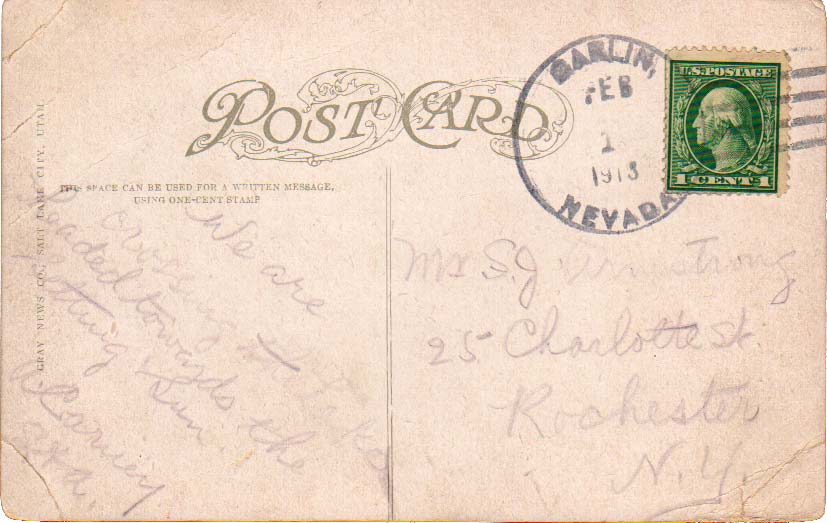 POST CARD
THIS SPACE CAN BE USED FOR A WRITTEN MESSAGE,
USING ONE-CENT STAMP
GRAY NEWS CO., SALT LAKE CITY, UTAH.
CARLIN,
FEB
1
1913
NEVADA
U.S. POSTAGE
1 CENT 1
We are
crossing
headed towards the
Sun.
Carney
Mr S.J. Armstrong
25 Charlotte St.
Rochester
N.Y.